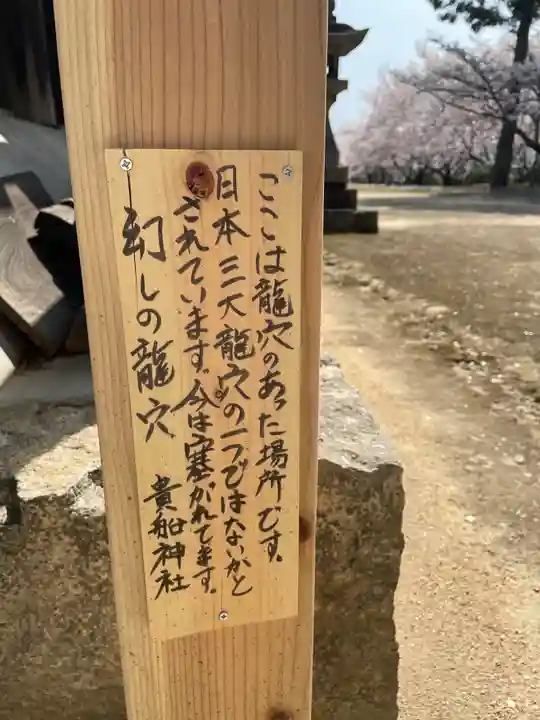 ここは龍穴のあった場所です。
日本三大龍穴の一つではないかと
されています。今は塞がれてます。
幻しの龍穴
貴船神社